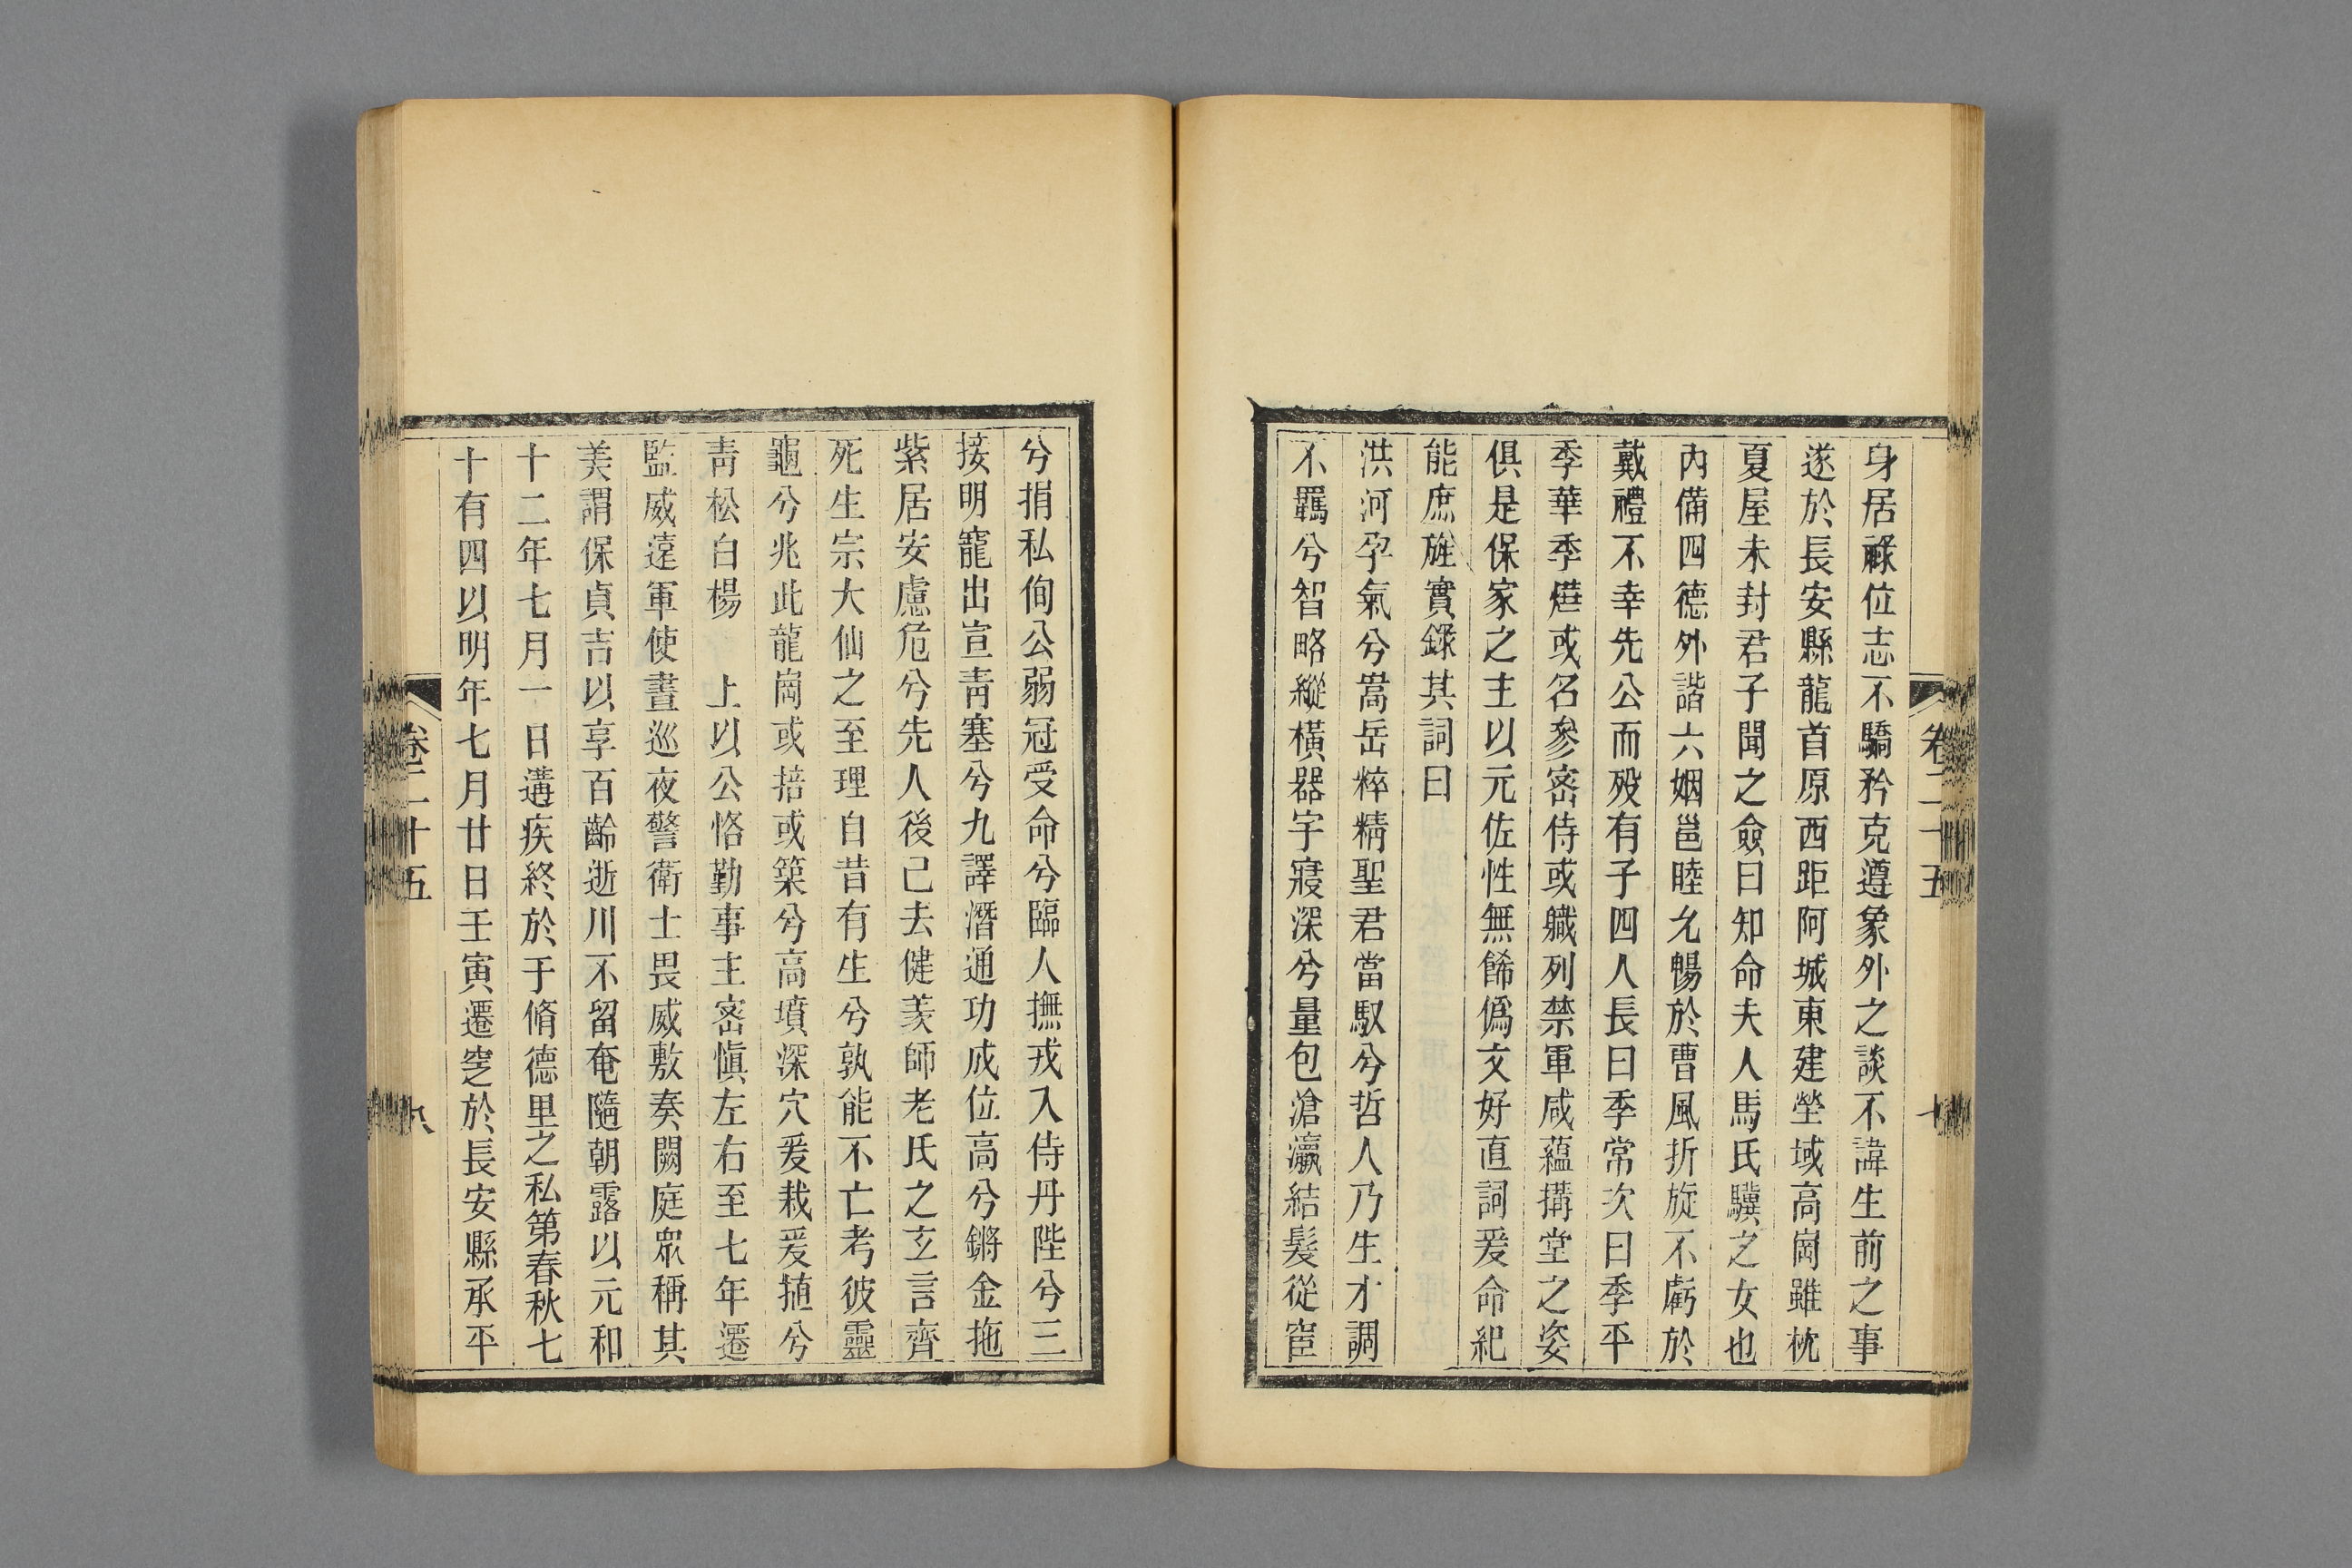 身居祿位志不驕矜克遵象外之談不諱生前之事
遂於長安縣龍首原西距阿城東建塋域高崗雖枕
夏屋未封君子聞之僉曰知命夫人馬氏驥之女也
內備四德外諧六姻邕睦允暢於曹風折旋不虧於
戴禮不幸先公而歿有子四人長曰季常次曰季平
季華季㷸或名參密侍或軄列禁軍咸蘊搆堂之姿
俱是保家之主以元佐性無餙僞文好直詞爰命紀
能庶旌實錄其詞曰
洪河孕氣兮嵩岳粹精聖君當馭兮哲人乃生才調
不羈兮智略縱橫器宇寢深兮量包滄瀛結髮從宦
卷二十五
十
兮捐私侚公弱冠受命兮臨人撫戎入侍丹陛兮三
接明寵出宣靑塞兮九譯潛通功成位高兮鏘金拖
紫居安慮危兮先人後己去健羨師老氏之玄言齊
死生宗大仙之至理自昔有生兮孰能不亡考彼靈
龜兮兆此龍崗或掊或築兮高墳深穴爰栽爰植兮
靑松白楊　上以公恪勤事主密愼左右至七年遷
監威遠軍使晝巡夜警衛士畏威敷奏闕庭眾稱其
美謂保貞吉以享百齡逝川不留奄隨朝露以元和
十二年七月一日遘疾終於于脩德里之私第春秋七
十有四以明年七月廿日壬寅遷窆於長安縣承平
卷二十五